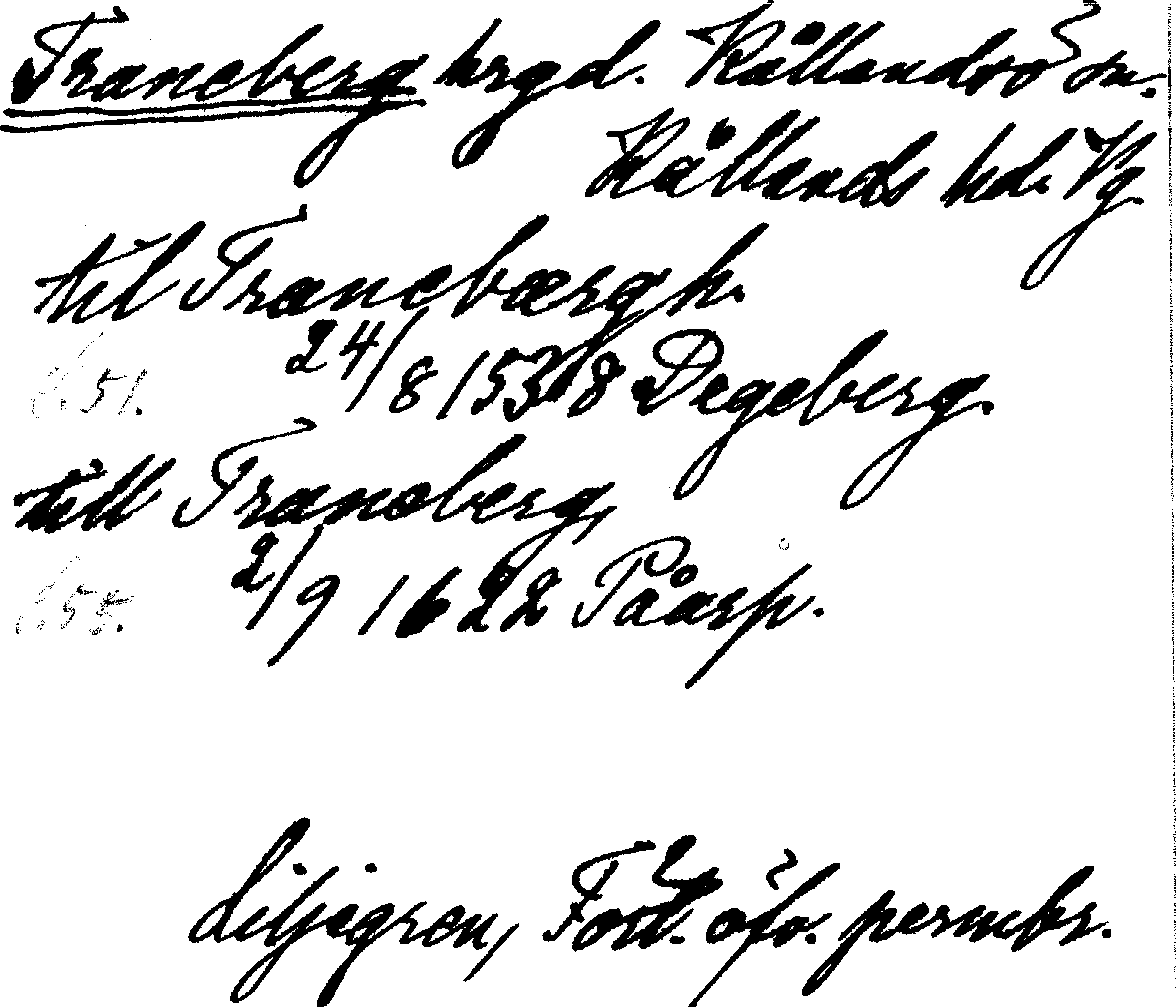 Traneberg hrgd. Kållandsö sn.
Kållands hd. Vg.
til Tranebærgh.
s. 51. 24/8 1538 Degeberg.
till Traneberg,
s. 55. 2/9 1622 Påarp.
Liljegren, Fört. öfv. permbr.